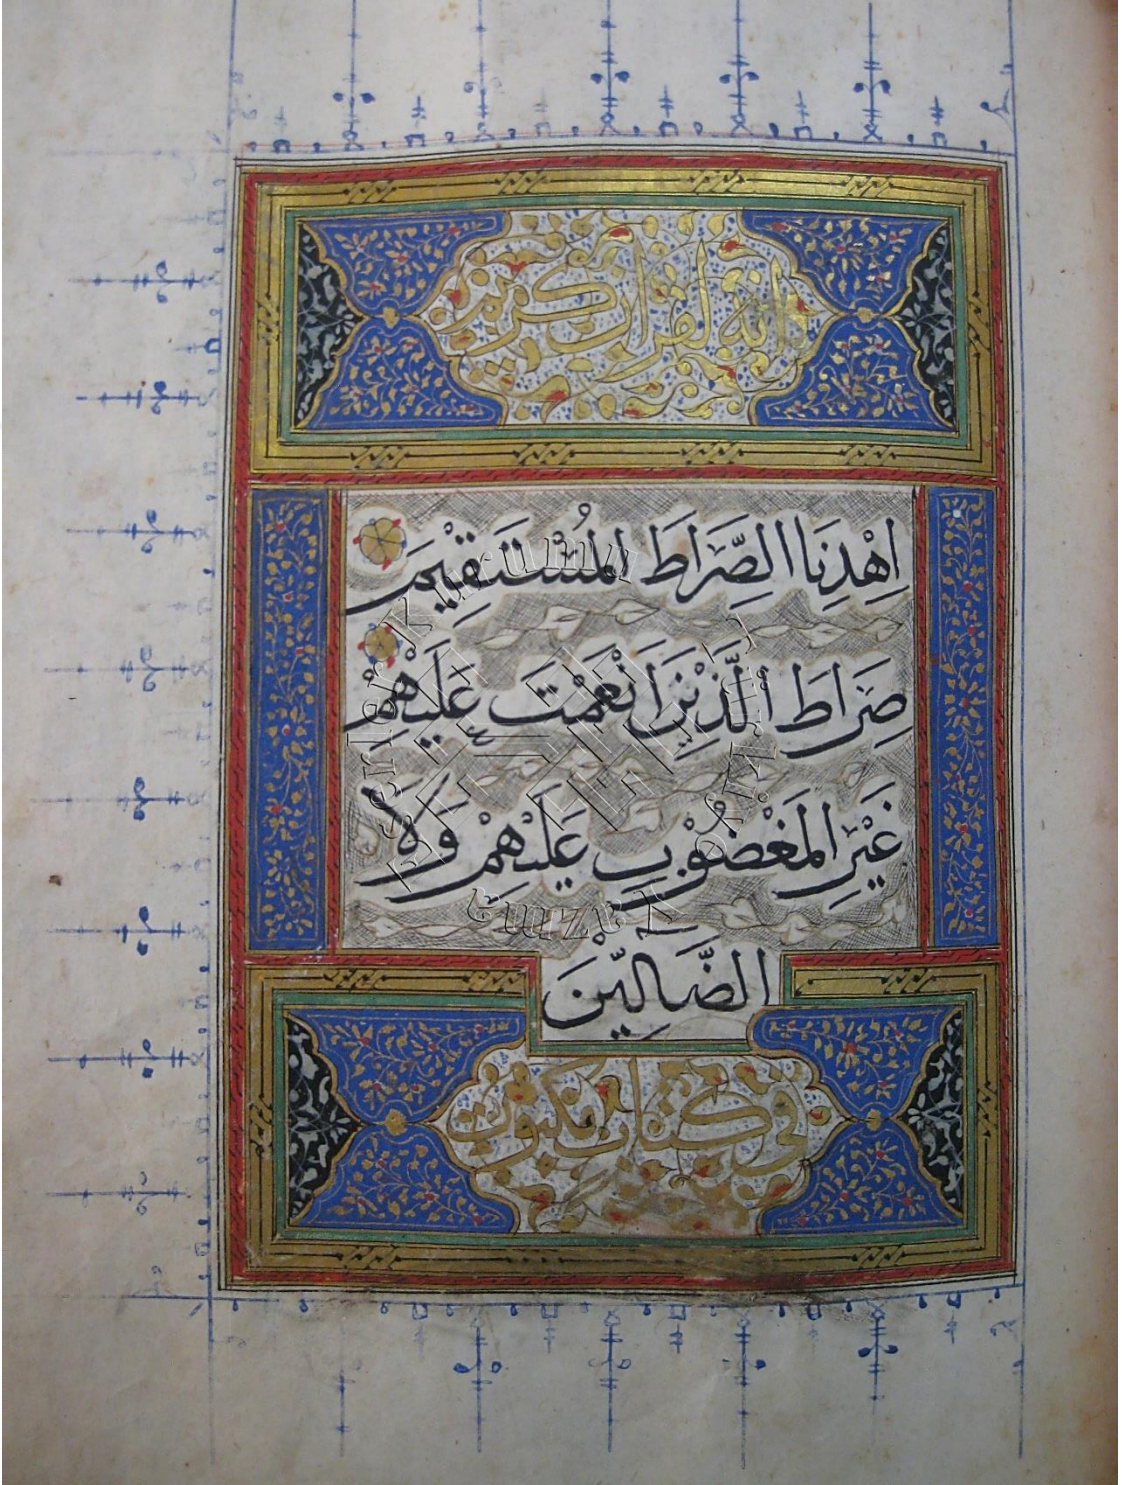 إنه لقرآن كريم
اِهْدِنَا الصِّرَاطَ الْمُسْتَقِيمَ
صِرَاطَ الَّذِينَ اَنْعَمْتَ عَلَيْهِمْ
غَيْرِ الْمَغْضُوْبِ عَلَيْهِمْ وَلَا
الضَّالِّيْنَ
في كتاب مكنون